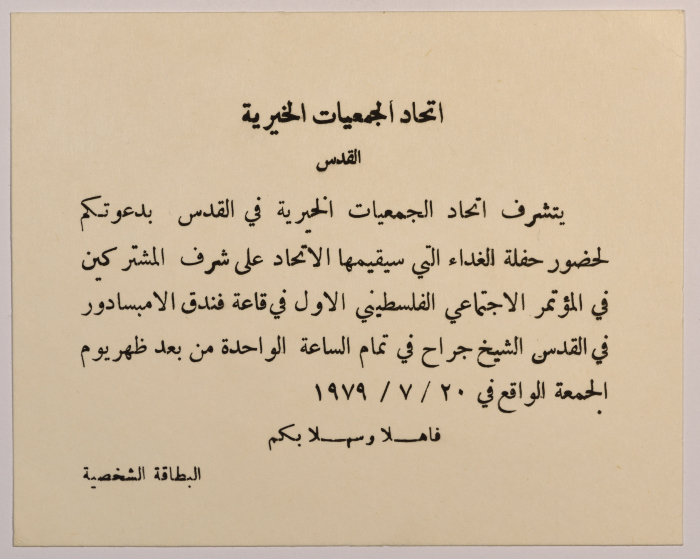 اتحاد الجمعيات الخيرية
القدس
يتشرف اتحاد الجمعيات الخيرية في القدس بدعوتكم
لحضور حفلة الغداء التي سيقيمها الاتحاد على شرف المشتركين
في المؤتمر الاجتماعي الفلسطيني الاول في قاعة فندق الامبسادور
في القدس الشيخ جراح في تمام الساعة الواحدة من بعد ظهر يوم
الجمعة الواقع في ٢٠ / ٧ / ١٩٧٩
فاهـلا وسهـلا بكم
البطاقة الشخصية